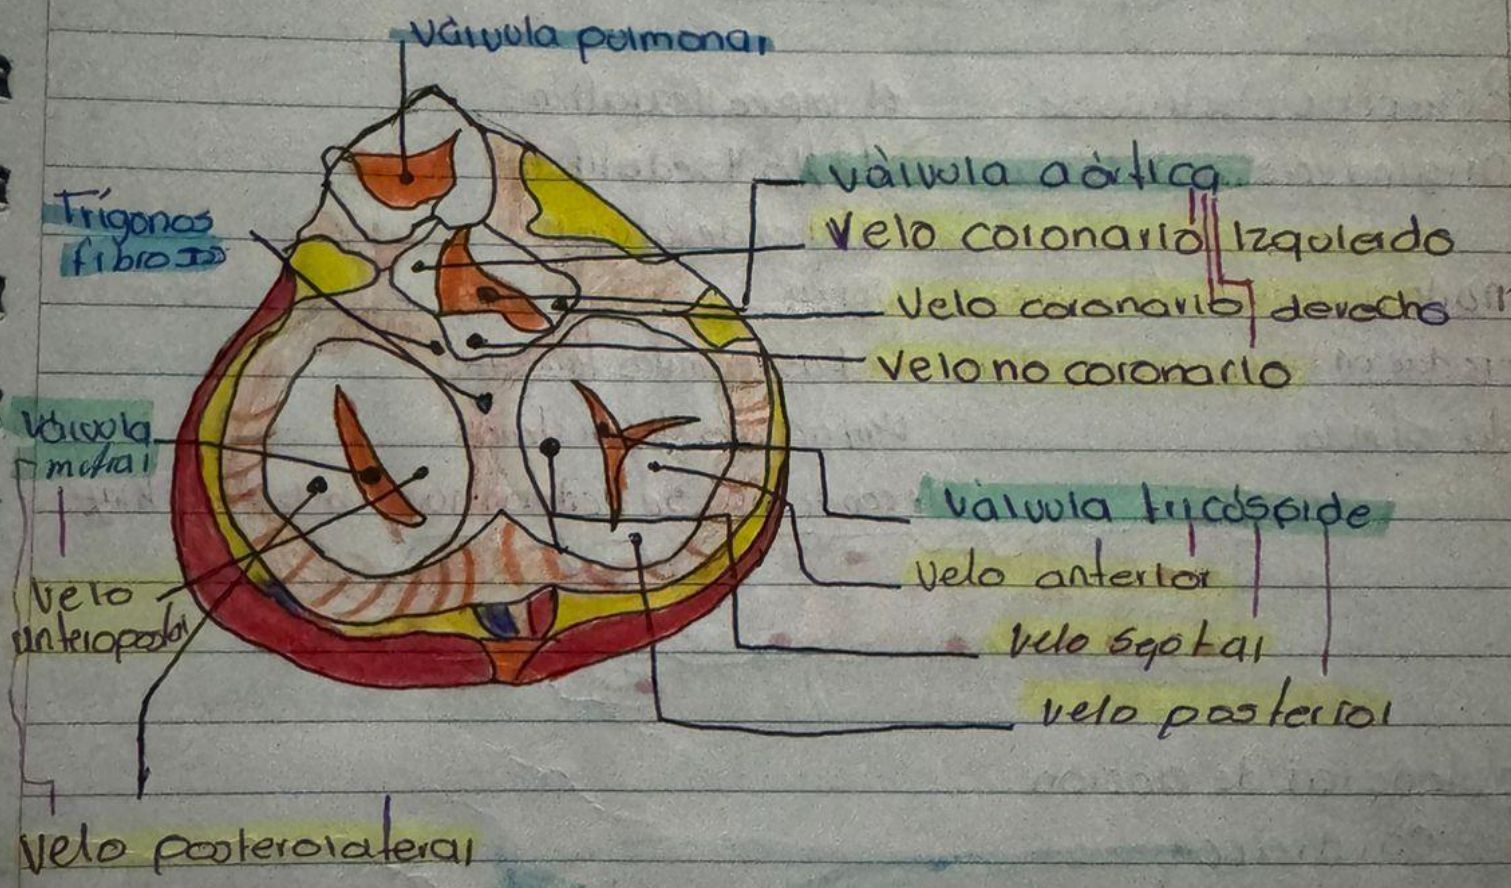 Válvula pulmonar
Trígonos
fibroso
válvula aórtica
velo coronario Izquierdo
velo coronario derecho
velo no coronario
Válvula
mitral
válvula tricúspide
velo anterior
velo septal
velo
velo posterior
velo posterolateral